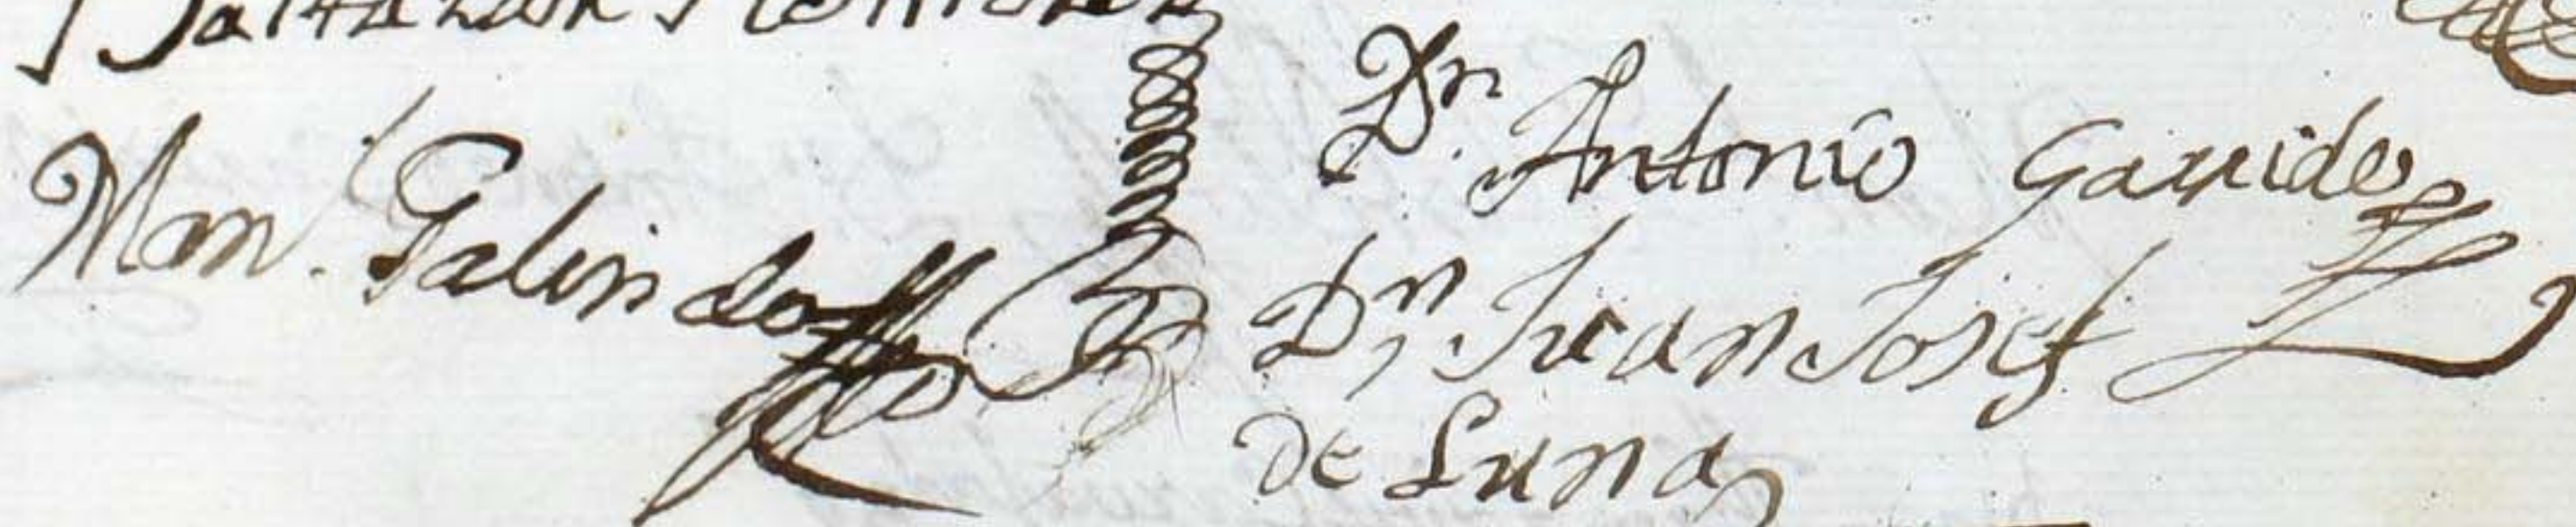 Baltazar
Man.l Galindo
Dn Antonio Garrido
Dn Juan Josef
de Luna